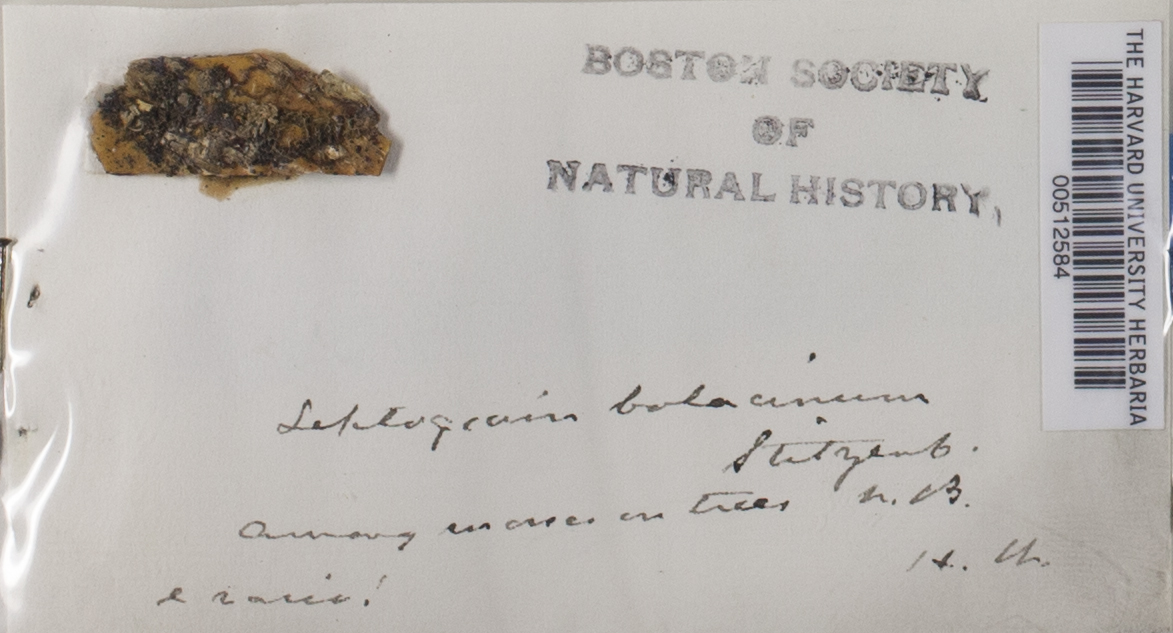 BOSTON SOCIETY
OF
NATURAL HISTORY,
THE HARVARD UNIVERSITY HERBARIA
00512584
Leptogium bolacinum
Stitzenb.
Among mosses on trees N. B.
H. W.
e rariss!